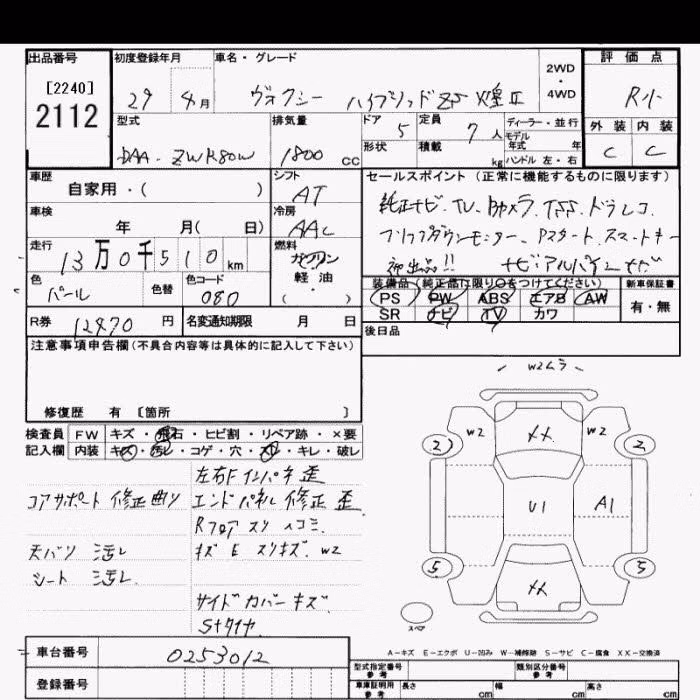 出品番号
[2240]
2112
初度登録年月
29年4月
車名・グレード
ヴォクシー ハイブリッド ZS 煌Ⅱ
2WD
・
4WD
評価点
R小
外装 内装
C C
型式
DAA-ZWR80W
排気量
1800 cc
ドア 5
形状
定員 7 人
積載 kg
ディーラー・並行
モデル
年式 年
ハンドル 左・右
車歴
自家用・( )
シフト
AT
車検
年 月( 日)
冷房
AAC
走行
13万0千510km
燃料
ガソリン
軽油
( )
色
パール
色替
カラーコード
080
R券 12470 円
名変通知期限 月 日
セールスポイント(正常に機能するものに限ります)
純正ナビ. TV. Bカメラ. TSS. ドラレコ.
フリップダウンモニター. Pスタート. スマートキー
初出品!! ナビ:アルパインナビ
装備品(純正品に限り○をつけてください)
PS PW ABS エアB AW
SR ナビ TV カワ
新車保証書
有・無
後日品
注意事項申告欄(不具合内容等は具体的に記入して下さい)
修復歴 有 〔箇所 〕
検査員
記入欄
FW キズ・飛石・ヒビ割・リペア跡・×要
内装 キズ・汚レ・コゲ・穴・スレ・キレ・破レ
左右Fインパネ歪
コアサポート 修正曲り エンドパネル 修正 歪
Rフロア スリ 凹コミ
天バリ 汚レ キズ E スリキズ. W2
シート 汚レ.
サイドカバー キズ
Sタイヤ
W2ムラ
W2 XX W2
2 2
U1 A1
5 XX 5
スペア
A-キズ E-エクボ U-凹み W-補修跡 S-サビ C-腐食 XX-交換済
車台番号
0253012
登録番号
型式指定番号
参考
類別区分番号
参考
車庫証明用
参考
長さ cm 幅 cm 高さ cm